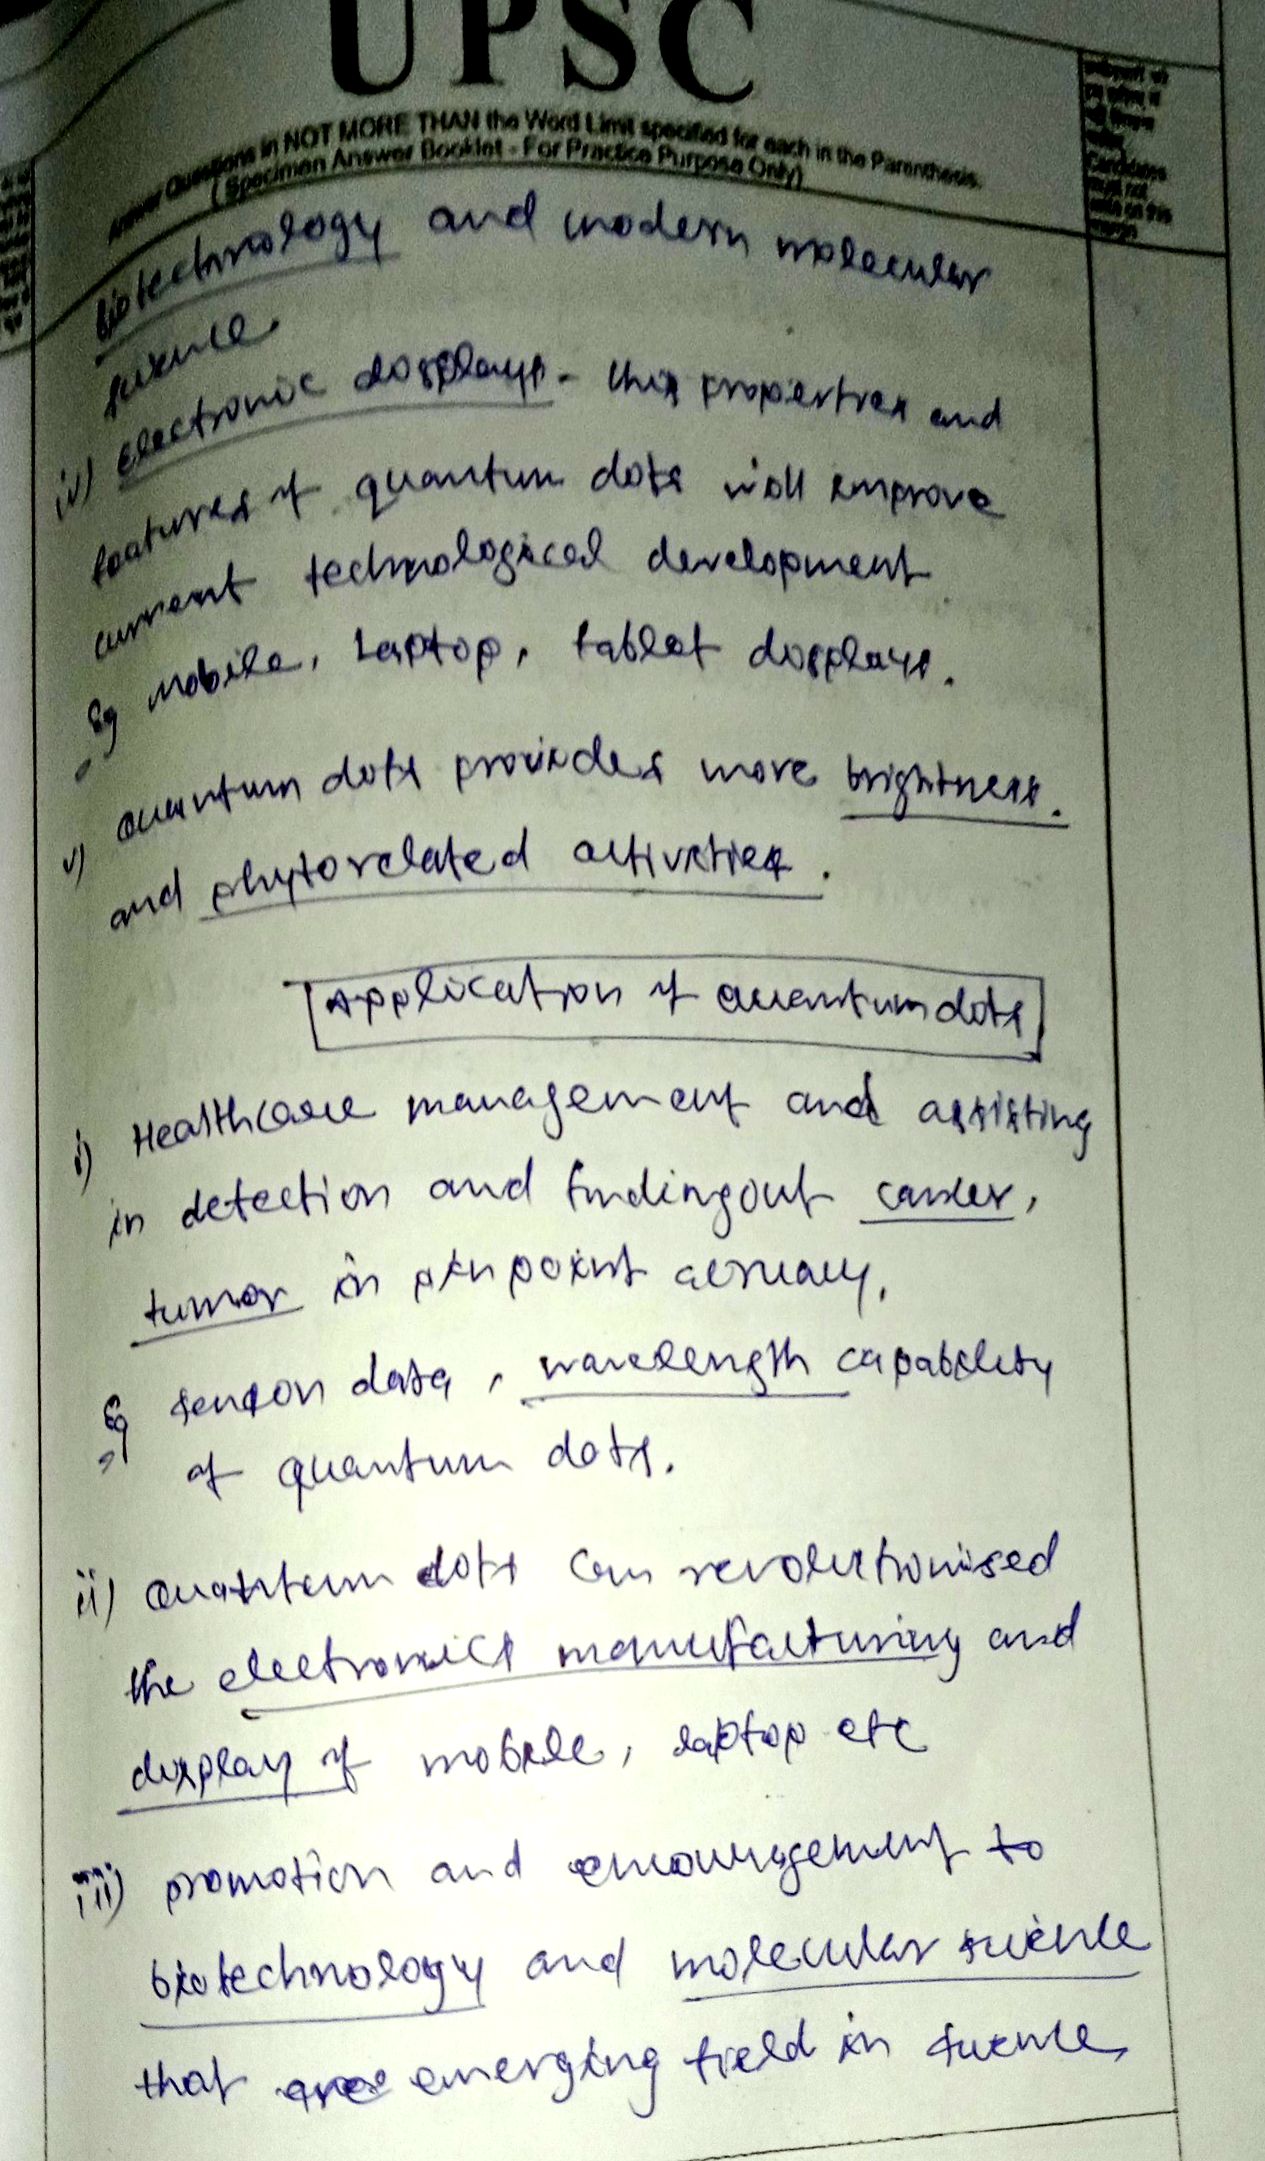 UPSC
Answer Questions in NOT MORE THAN the Word Limit specified for each in the Parenthesis.
( Specimen Answer Booklet - For Practice Purpose Only)
Candidates
must not
write on this
margin
Biotechnology and modern molecular
science.
iv) Electronic displays - this properties and
features of quantum dots will improve
current technological development
Eg mobile, Laptop, tablet displays.
v) Quantum dots provides more brightness.
and phytorelated activities.
Application of Quantum dots
i) Healthcare management and assisting
in detection and finding out cancer,
tumor in pin point accuracy.
Eg data, wavelength capability
of quantum dots.
ii) Quantum dots can revolutionised
the electronics manufacturing and
display of mobile, laptop etc
iii) promotion and encouragement to
biotechnology and molecular science
that are emerging field in science,